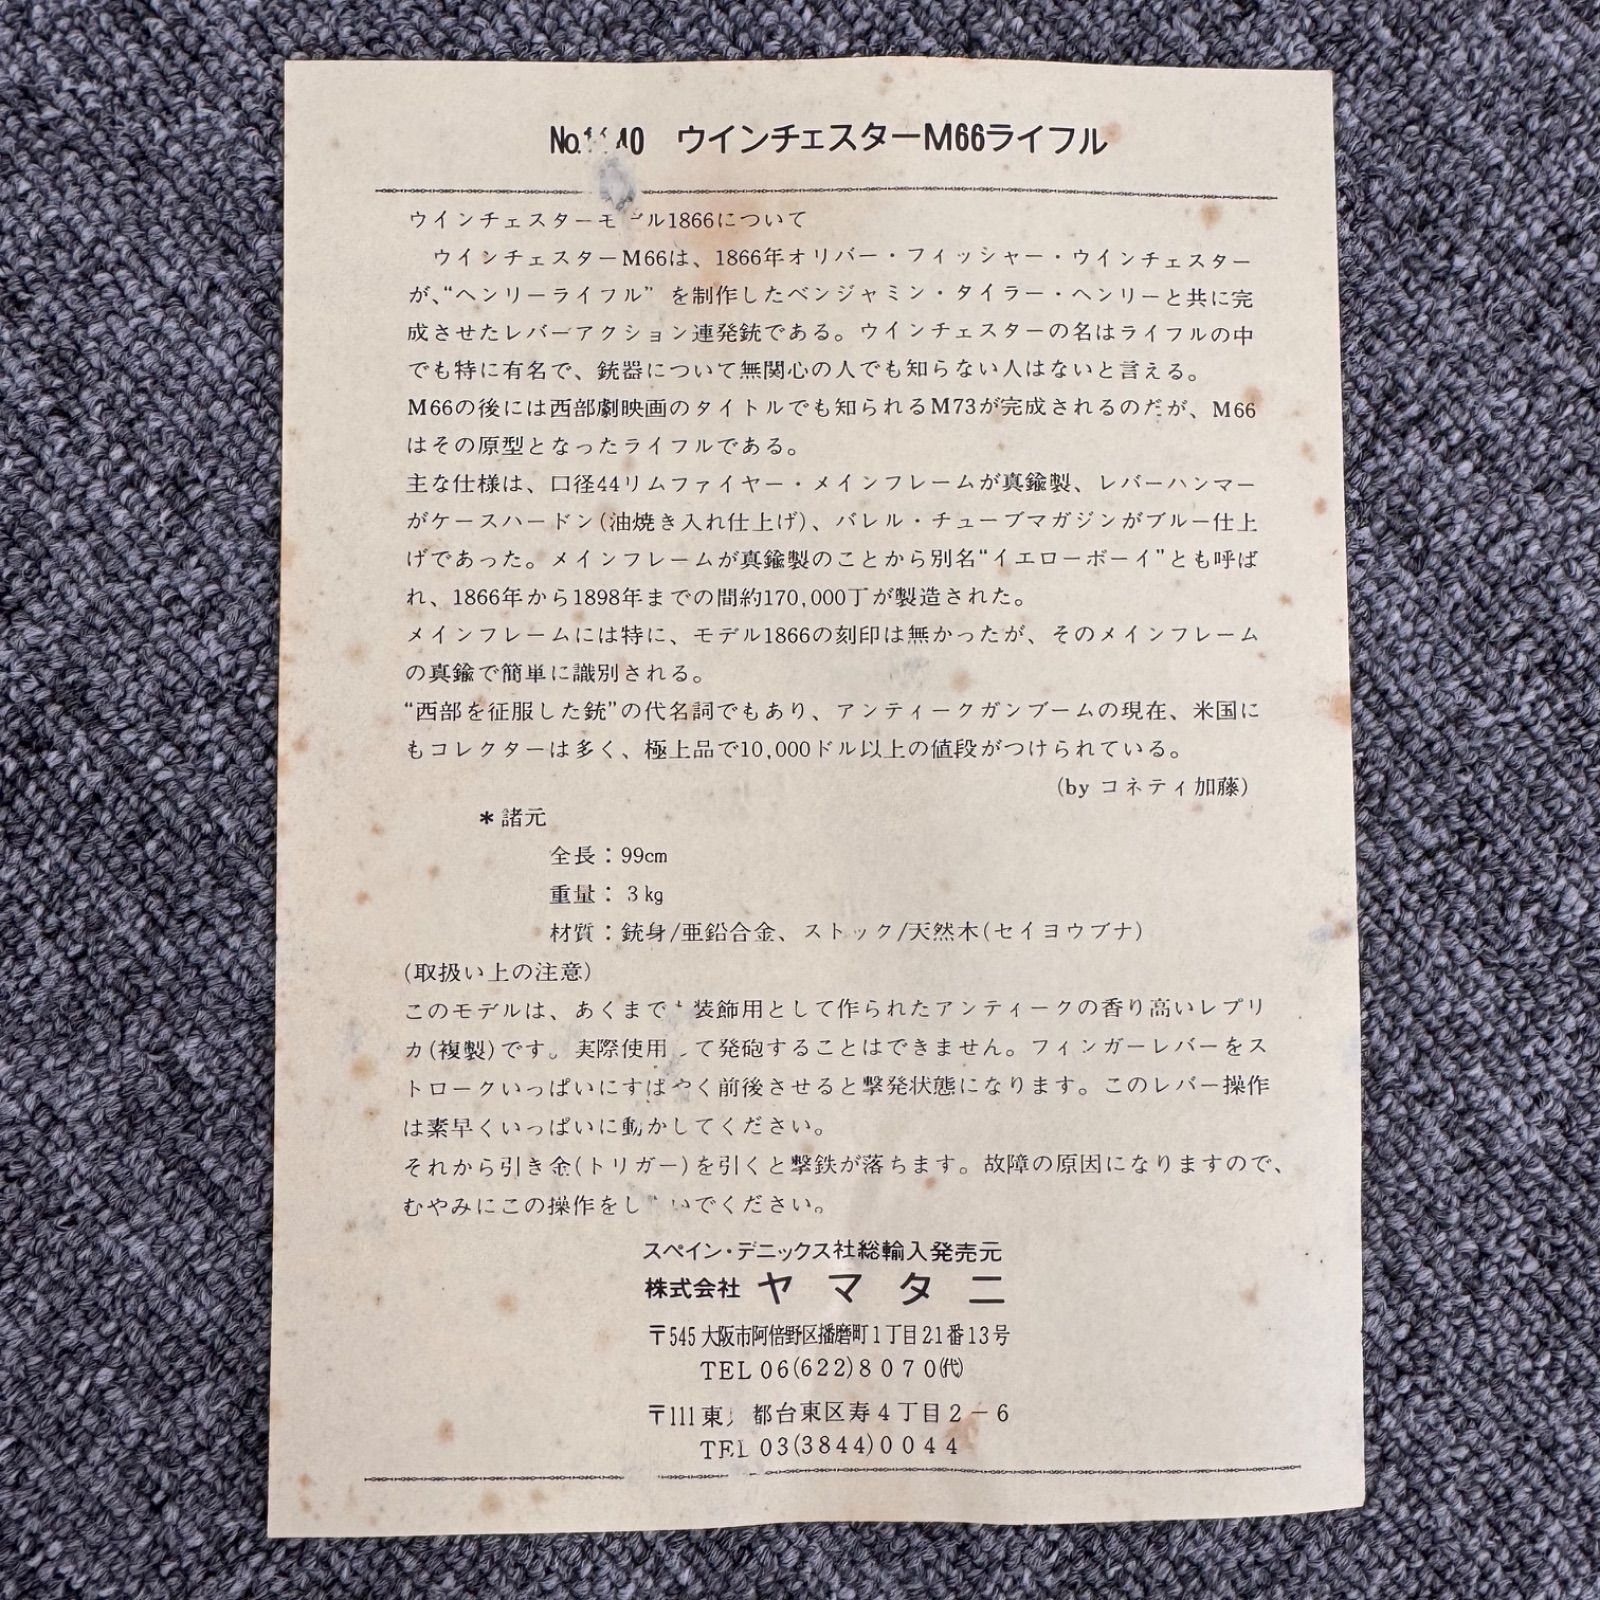 ウインチェスターM66ライフル
ウインチェスターモデル1866について
ウインチェスターM66は、1866年オリバー・フィッシャー・ウインチェスター
が、“ヘンリーライフル”を制作したベンジャミン・タイラー・ヘンリーと共に完
成させたレバーアクション連発銃である。ウインチェスターの名はライフルの中
でも特に有名で、銃器について無関心の人でも知らない人はないと言える。
M66の後には西部劇映画のタイトルでも知られるM73が完成されるのだが、M66
はその原型となったライフルである。
主な仕様は、口径44リムファイヤー・メインフレームが真鍮製、レバーハンマー
がケースハードン(油焼き入れ仕上げ)、バレル・チューブマガジンがブルー仕上
げであった。メインフレームが真鍮製のことから別名“イエローボーイ”とも呼ば
れ、1866年から1898年までの間約170,000丁が製造された。
メインフレームには特に、モデル1866の刻印は無かったが、そのメインフレーム
の真鍮で簡単に識別される。
“西部を征服した銃”の代名詞でもあり、アンティークガンブームの現在、米国に
もコレクターは多く、極上品で10,000ドル以上の値段がつけられている。
(by コネティ加藤)
＊諸元
全長：99cm
重量：3kg
材質：銃身/亜鉛合金、ストック/天然木(セイヨウブナ)
(取扱い上の注意)
このモデルは、あくまでも装飾用として作られたアンティークの香り高いレプリ
カ(複製)です。実際使用して発砲することはできません。フィンガーレバーをス
トロークいっぱいにすばやく前後させると撃発状態になります。このレバー操作
は素早くいっぱいに動かしてください。
それから引き金(トリガー)を引くと撃鉄が落ちます。故障の原因になりますので、
むやみにこの操作をしないでください。
スペイン・デニックス社総輸入発売元
株式会社 ヤマタニ
〒545 大阪市阿倍野区播磨町1丁目21番13号
TEL 06(622)8070㈹
〒111 東京都台東区寿4丁目2-6
TEL 03(3844)0044